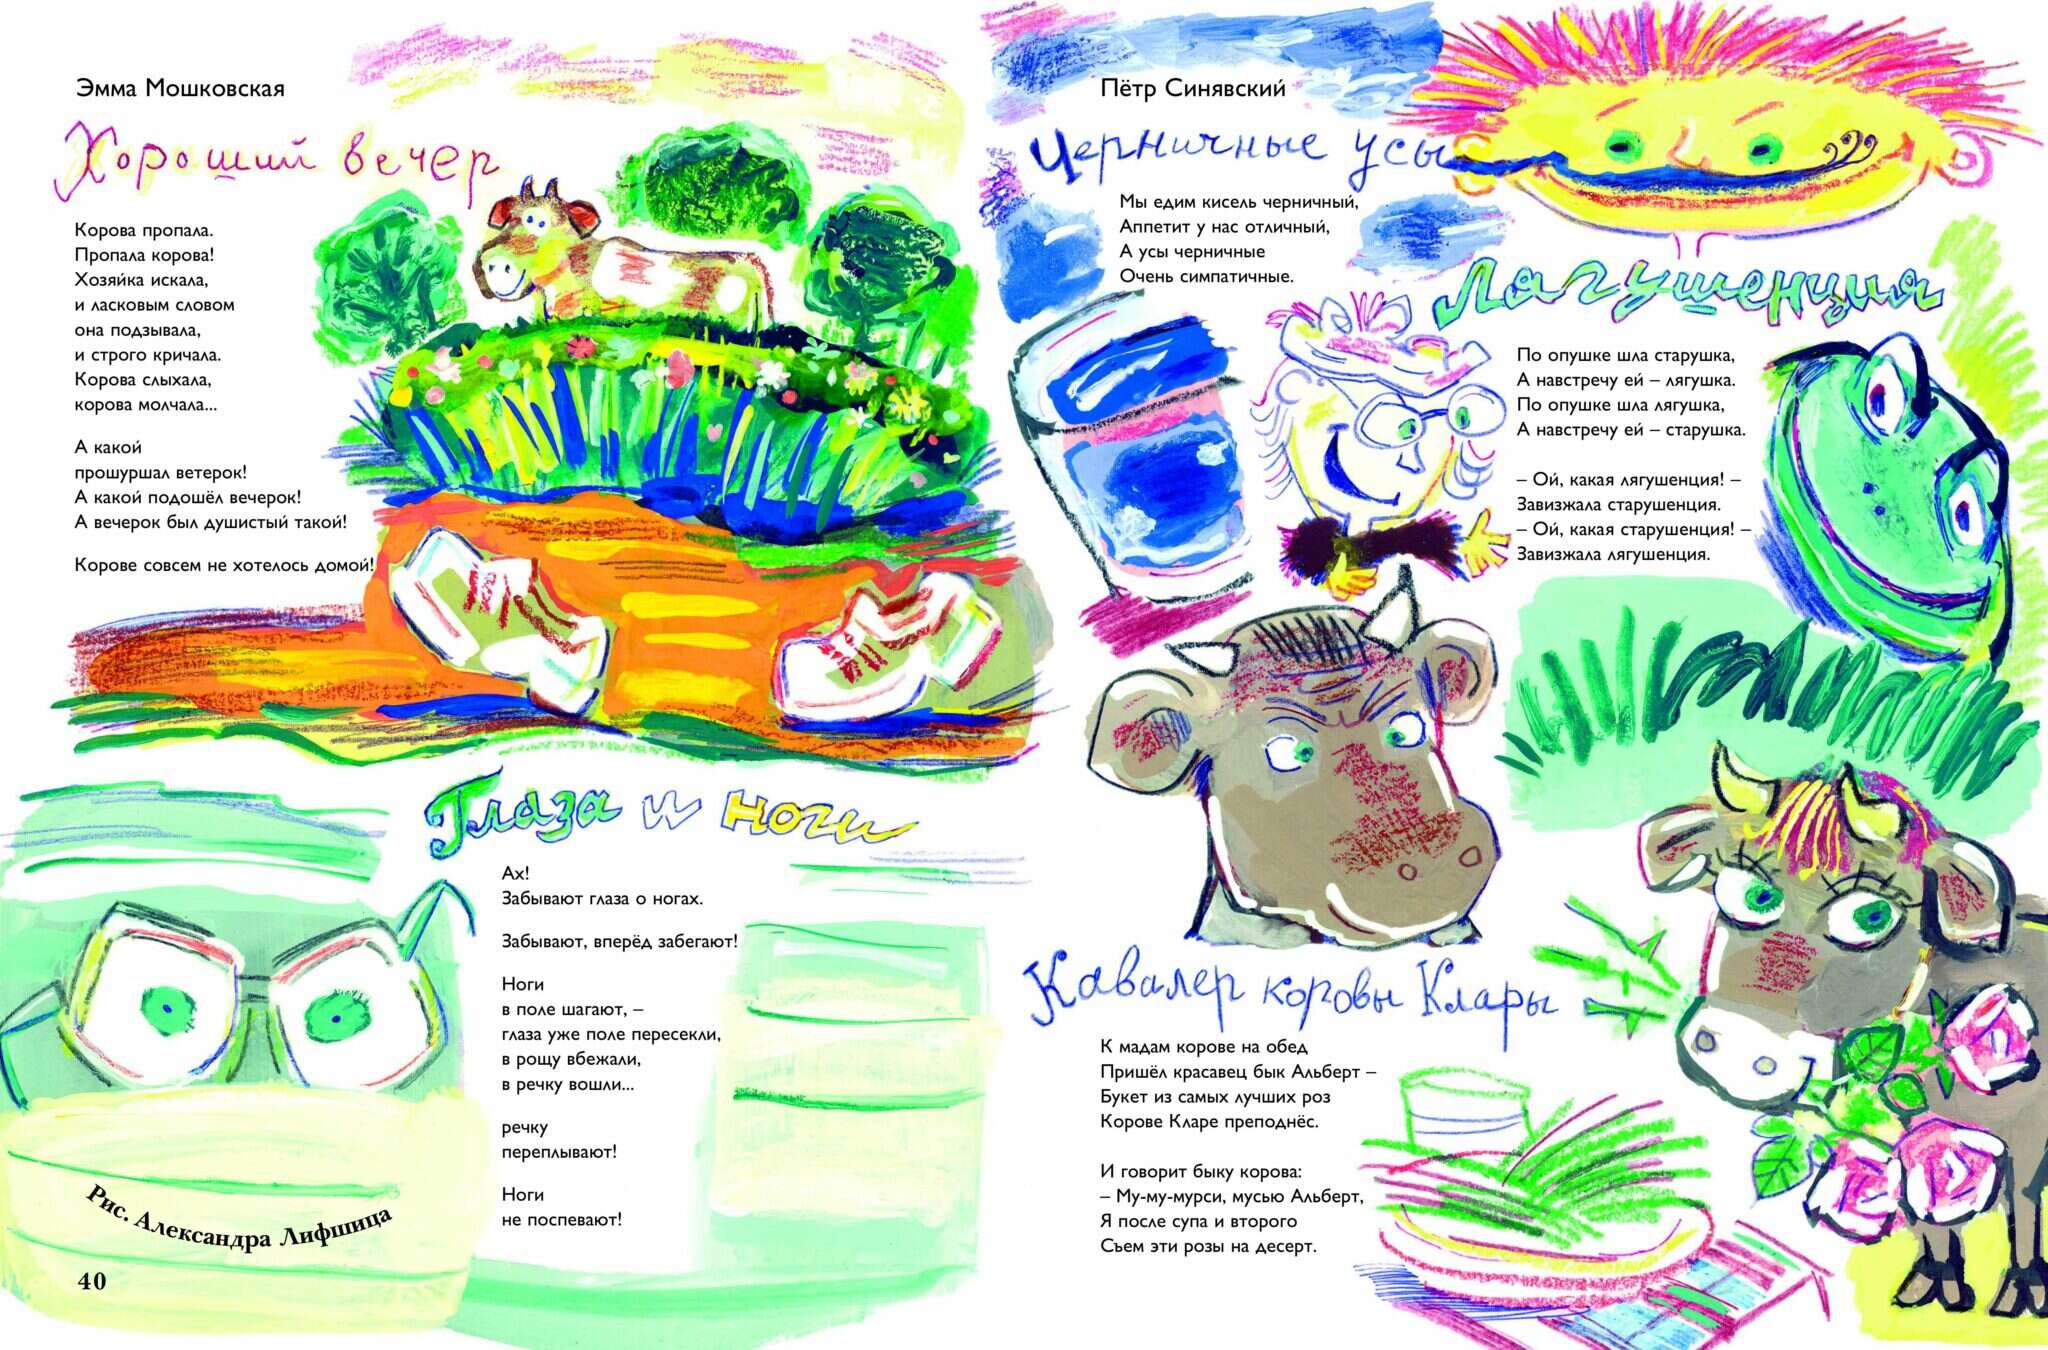 Эмма Мошковская
Хороший вечер
Корова пропала.
Пропала корова!
Хозяйка искала,
и ласковым словом
она подзывала,
и строго кричала.
Корова слыхала,
корова молчала...
А какой
прошуршал ветерок!
А какой подошёл вечерок!
А вечерок был душистый такой!
Корове совсем не хотелось домой!
Глаза и ноги
Ах!
Забывают глаза о ногах.
Забывают, вперёд забегают!
Ноги
в поле шагают, –
глаза уже поле пересекли,
в рощу вбежали,
в речку вошли...
речку
переплывают!
Ноги
не поспевают!
Рис. Александра Лифшица
40
Пётр Синявский
Черничные усы
Мы едим кисель черничный,
Аппетит у нас отличный,
А усы черничные
Очень симпатичные.
Лягушенция
По опушке шла старушка,
А навстречу ей – лягушка.
По опушке шла лягушка,
А навстречу ей – старушка.
– Ой, какая лягушенция! –
Завизжала старушенция.
– Ой, какая старушенция! –
Завизжала лягушенция.
Кавалер коровы Клары
К мадам корове на обед
Пришёл красавец бык Альберт –
Букет из самых лучших роз
Корове Кларе преподнёс.
И говорит быку корова:
– Му-му-мурси, мусью Альберт,
Я после супа и второго
Съем эти розы на десерт.